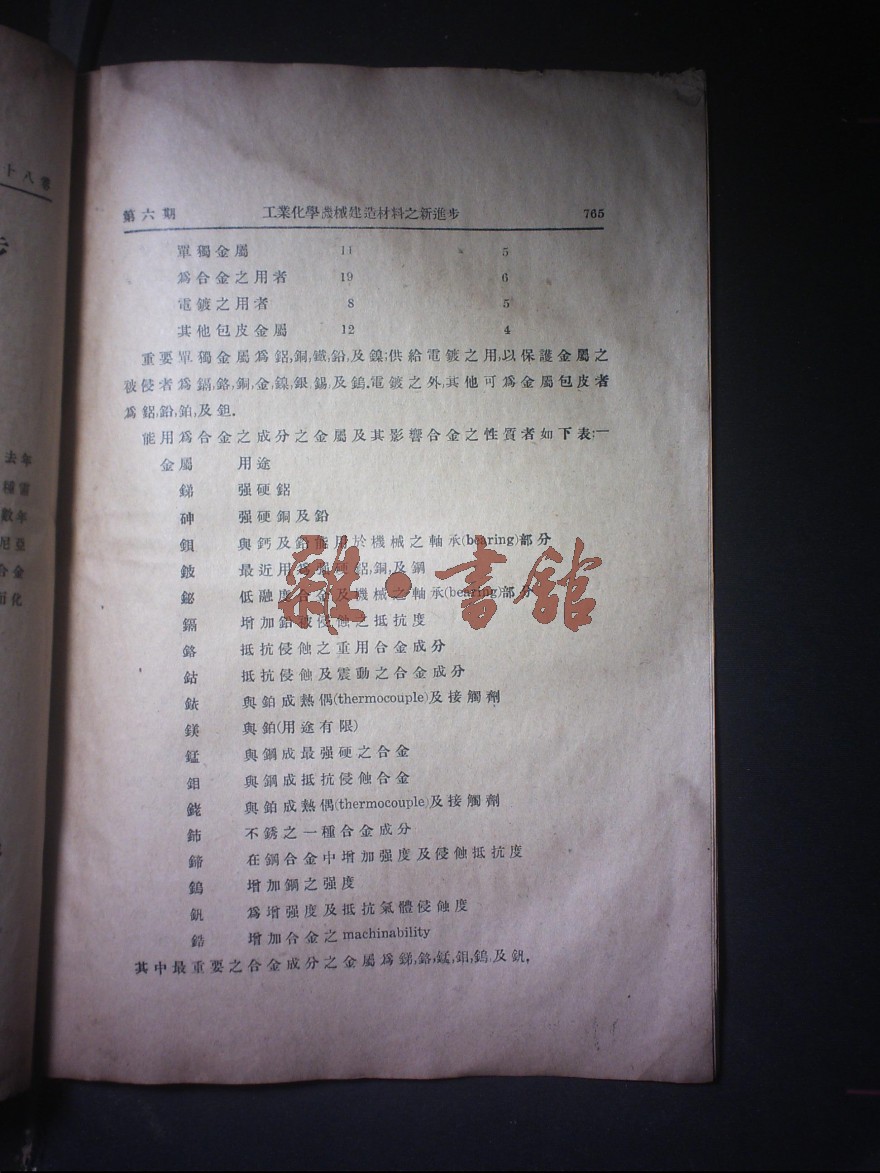 第六期 工業化學機械建造材料之新進步 765
單獨金屬 11 5
爲合金之用者 19 6
電鍍之用者 8 5
其他包皮金屬 12 4
重要單獨金屬爲鋁,銅,鐵,鉛,及鎳;供給電鍍之用,以保護金屬之
被侵者爲鎘,鉻,銅,金,鎳,銀,錫及鎢.電鍍之外,其他可爲金屬包皮者
爲鋁,鉛,鉑,及鉭.
能用爲合金之成分之金屬及其影響合金之性質者如下表:—
金屬 用途
銻 强硬鋁
砷 强硬銅及鉛
鋇 與鈣及鉛能用於機械之軸承(bearing)部分
鈹 最近用爲强硬鋁,銅,及鋼
鉍 低融度合金及機械之軸承(bearing)部分
鎘 增加鉛被侵蝕之抵抗度
鉻 抵抗侵蝕之重用合金成分
鈷 抵抗侵蝕及震動之合金成分
銥 與鉑成熱偶(thermocouple)及接觸劑
鎂 與鉑(用途有限)
錳 與鋼成最强硬之合金
鉬 與鋼成抵抗侵蝕合金
銠 與鉑成熱偶(thermocouple)及接觸劑
鈰 不銹之一種合金成分
鍗 在鋼合金中增加强度及侵蝕抵抗度
鎢 增加鋼之强度
釩 爲增强度及抵抗氣體侵蝕度
鋯 增加合金之machinability
其中最重要之合金成分之金屬爲銻,鉻,錳,鉬,鎢,及釩.
雜·書館
十八卷
去年
種當
數年
尼亞
合金